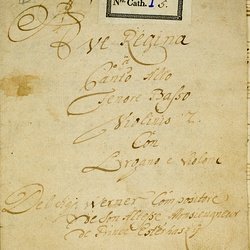 No. Cath. 15.
Salve Regina
à
Canto Alto
Tenore Basso
Violinis 2.
Con
Organo e Violone
Del Sigr Werner Compositore
de Son Altesse Monseigneur
de Prince Esterhasy